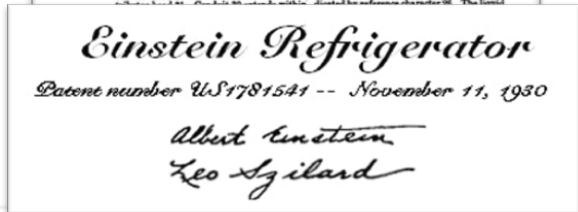 Einstein Refrigerator
Patent number US1781541 -- November 11, 1930
Albert Einstein
Leo Szilard